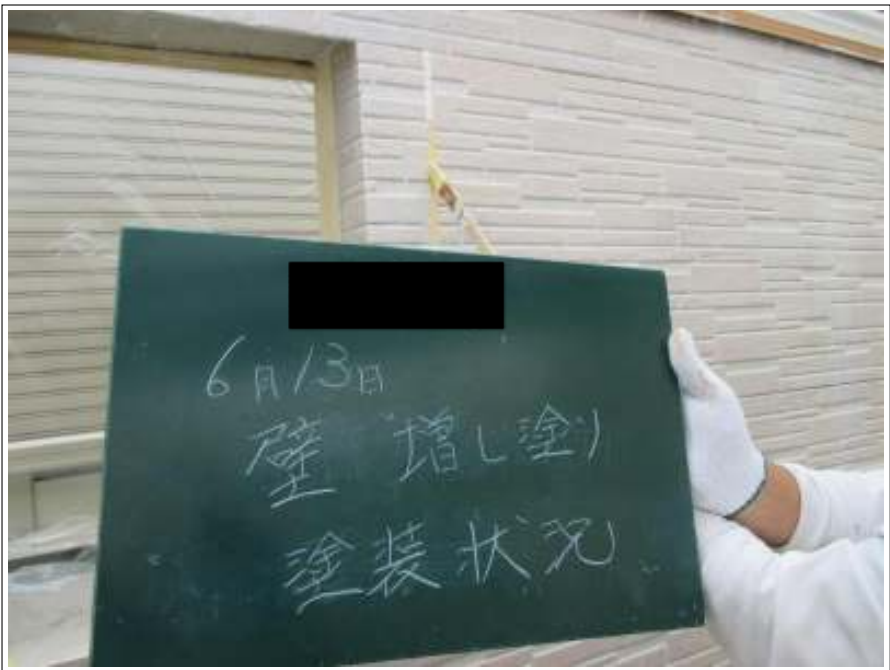 6月13日
壁 増し塗り
塗装状況